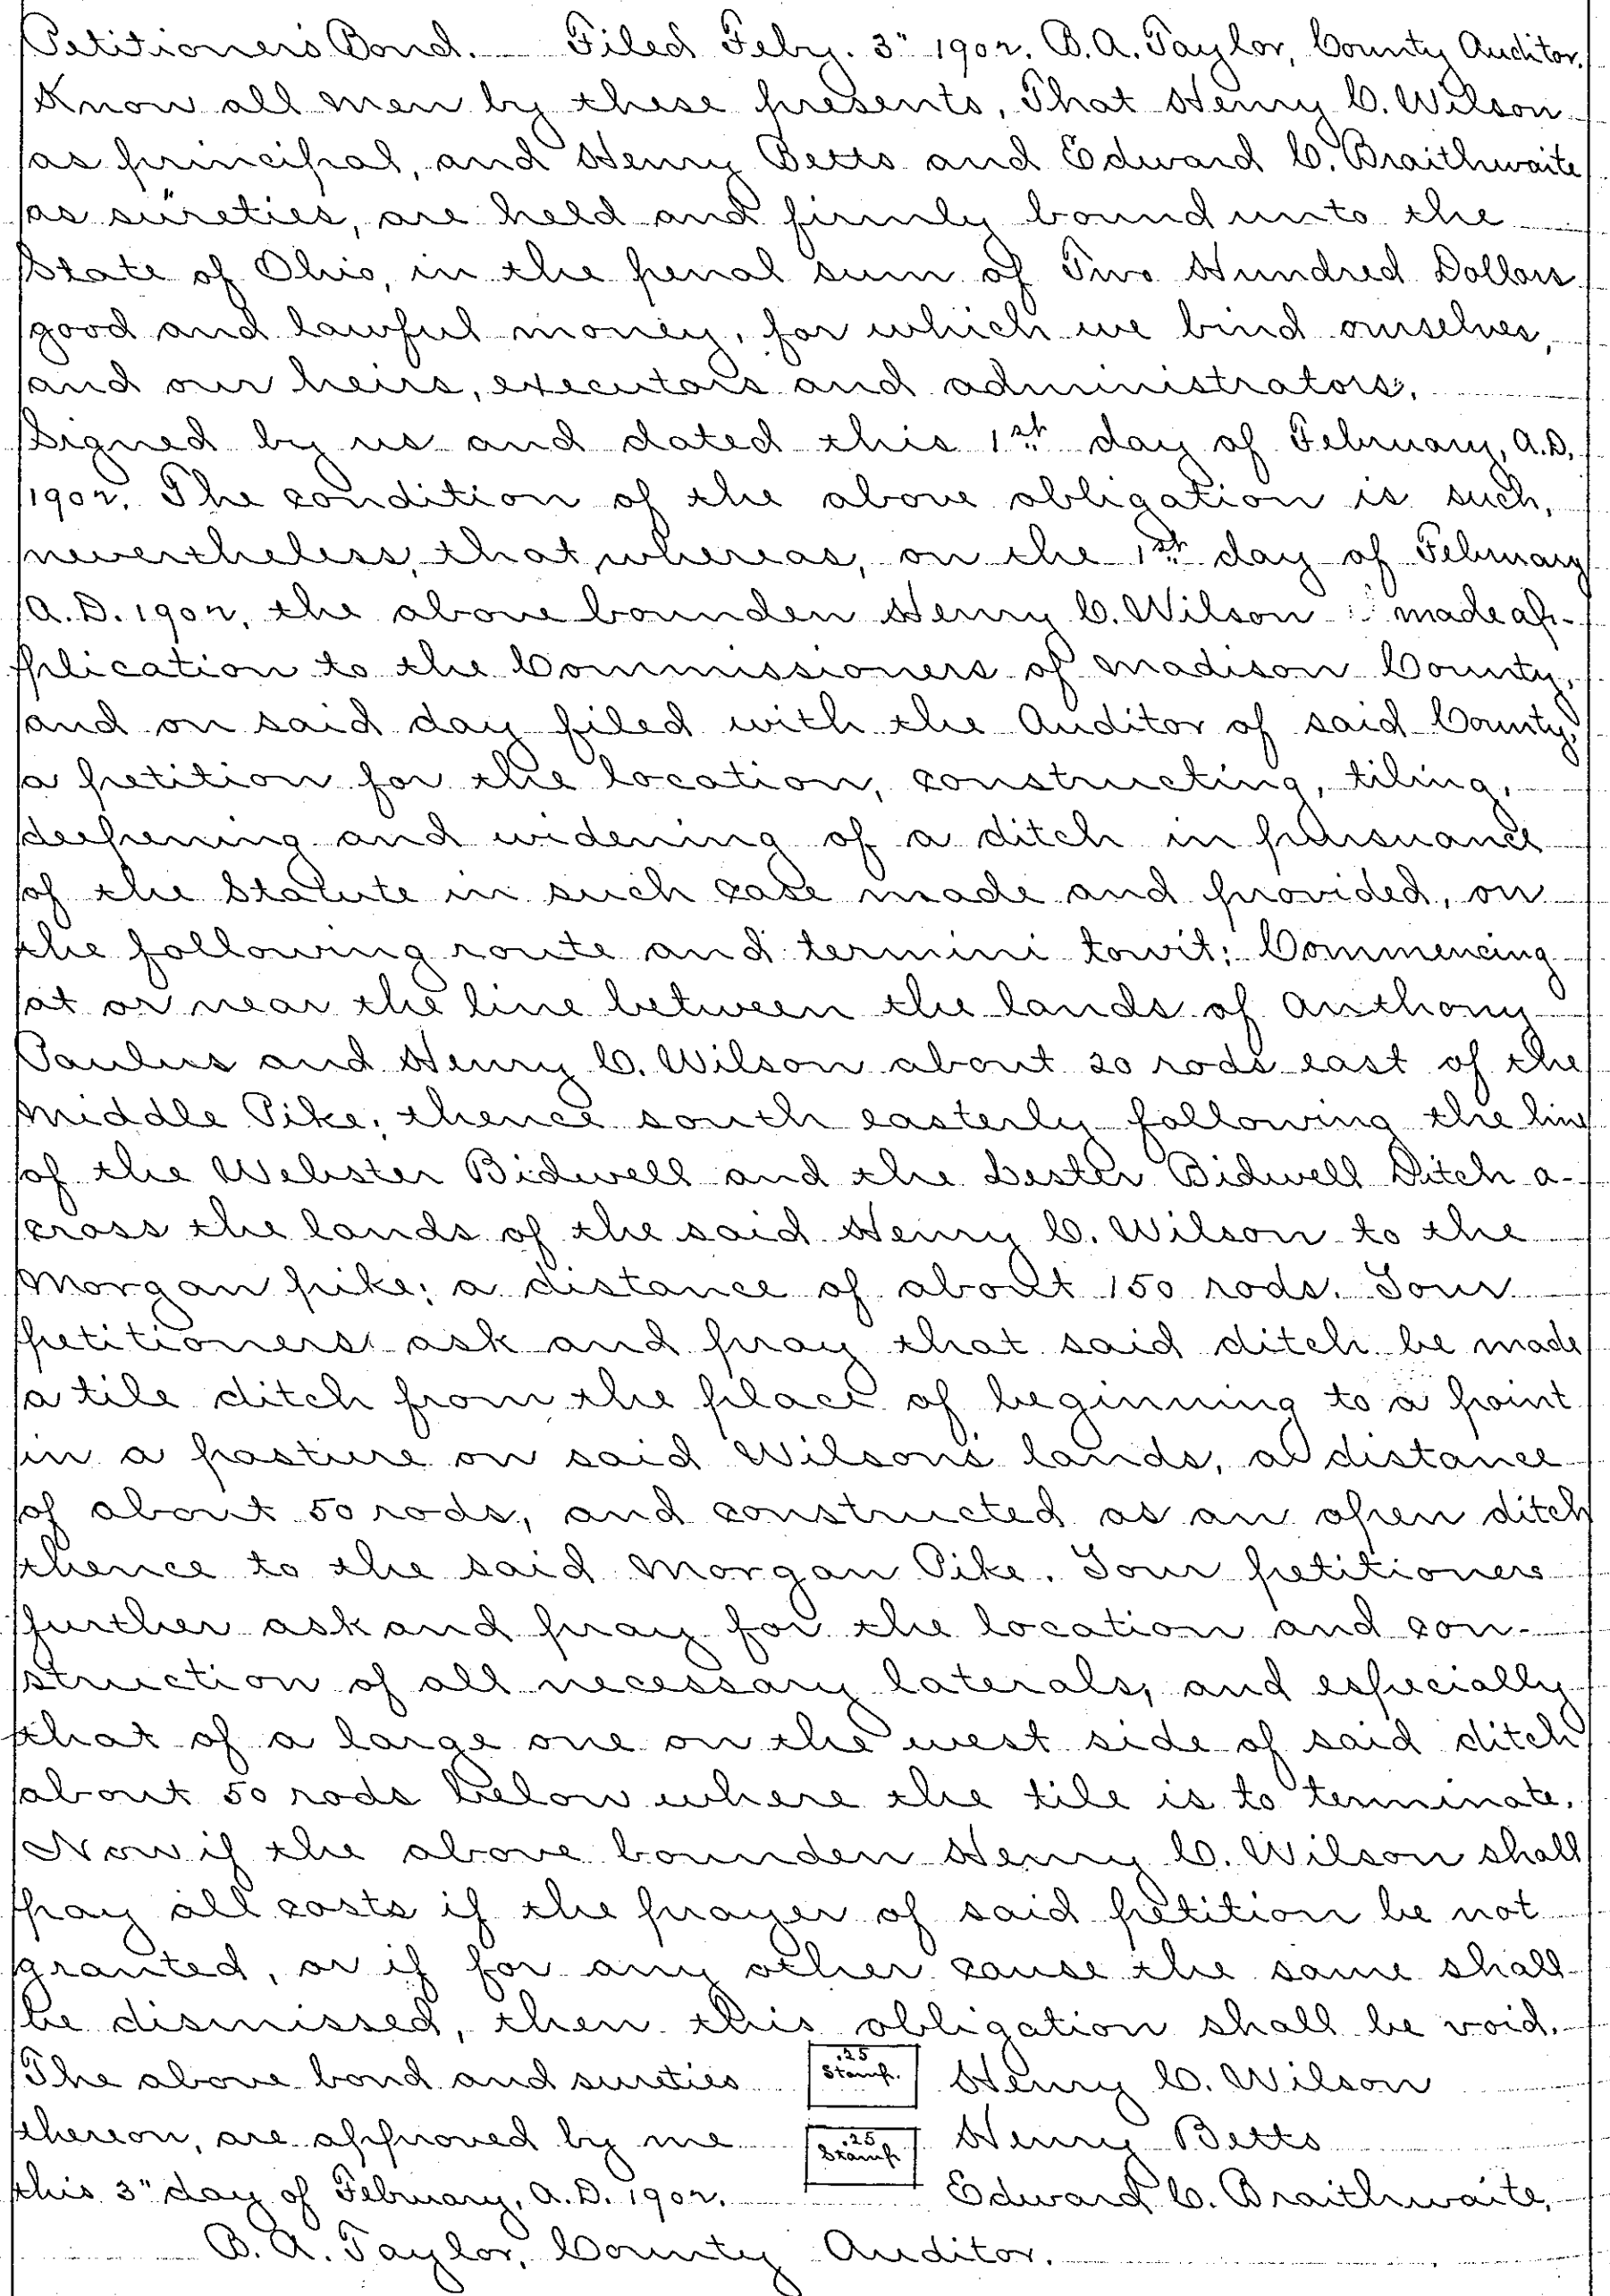 Petitioner's Bond. Filed Feby. 3" 1902. B. A. Taylor, County Auditor.
Know all men by these presents, That Henry C. Wilson
as principal, and Henry Betts and Edward C. Braithwaite
as sureties, are held and firmly bound unto the
State of Ohio, in the penal sum of Two Hundred Dollars
good and lawful money, for which we bind ourselves,
and our heirs, executors and administrators.
Signed by us and dated this 1st day of February, A.D.
1902. The condition of the above obligation is such,
nevertheless, that whereas, on the 1st day of February
A.D. 1902, the above bounden Henry C. Wilson made ap-
plication to the Commissioners of Madison County,
and on said day filed with the Auditor of said County,
a petition for the location, constructing, tiling,
deepening and widening of a ditch in pursuance
of the Statute in such case made and provided, on
the following route and termini towit: Commencing
at or near the line between the lands of Anthony
Paulus and Henry C. Wilson about 20 rods east of the
Middle Pike; thence south easterly following the line
of the Webster Bidwell and the Lester Bidwell Ditch a-
cross the lands of the said Henry C. Wilson to the
Morgan pike; a distance of about 150 rods. Your
petitioners ask and pray that said ditch be made
a tile ditch from the place of beginning to a point
in a pasture on said Wilson's lands, a distance
of about 50 rods, and constructed as an open ditch
thence to the said Morgan Pike. Your petitioners
further ask and pray for the location and con-
struction of all necessary laterals, and especially
that of a large one on the west side of said ditch
about 50 rods below where the tile is to terminate.
Now if the above bounden Henry C. Wilson shall
pay all costs if the prayer of said petition be not
granted, or if for any other cause the same shall
be dismissed, then this obligation shall be void.
The above bond and sureties .25 Stamp. Henry C. Wilson
thereon, are approved by me .25 Stamp. Henry Betts
this 3" day of February, A.D. 1902. Edward C. Braithwaite,
B. A. Taylor, County Auditor.